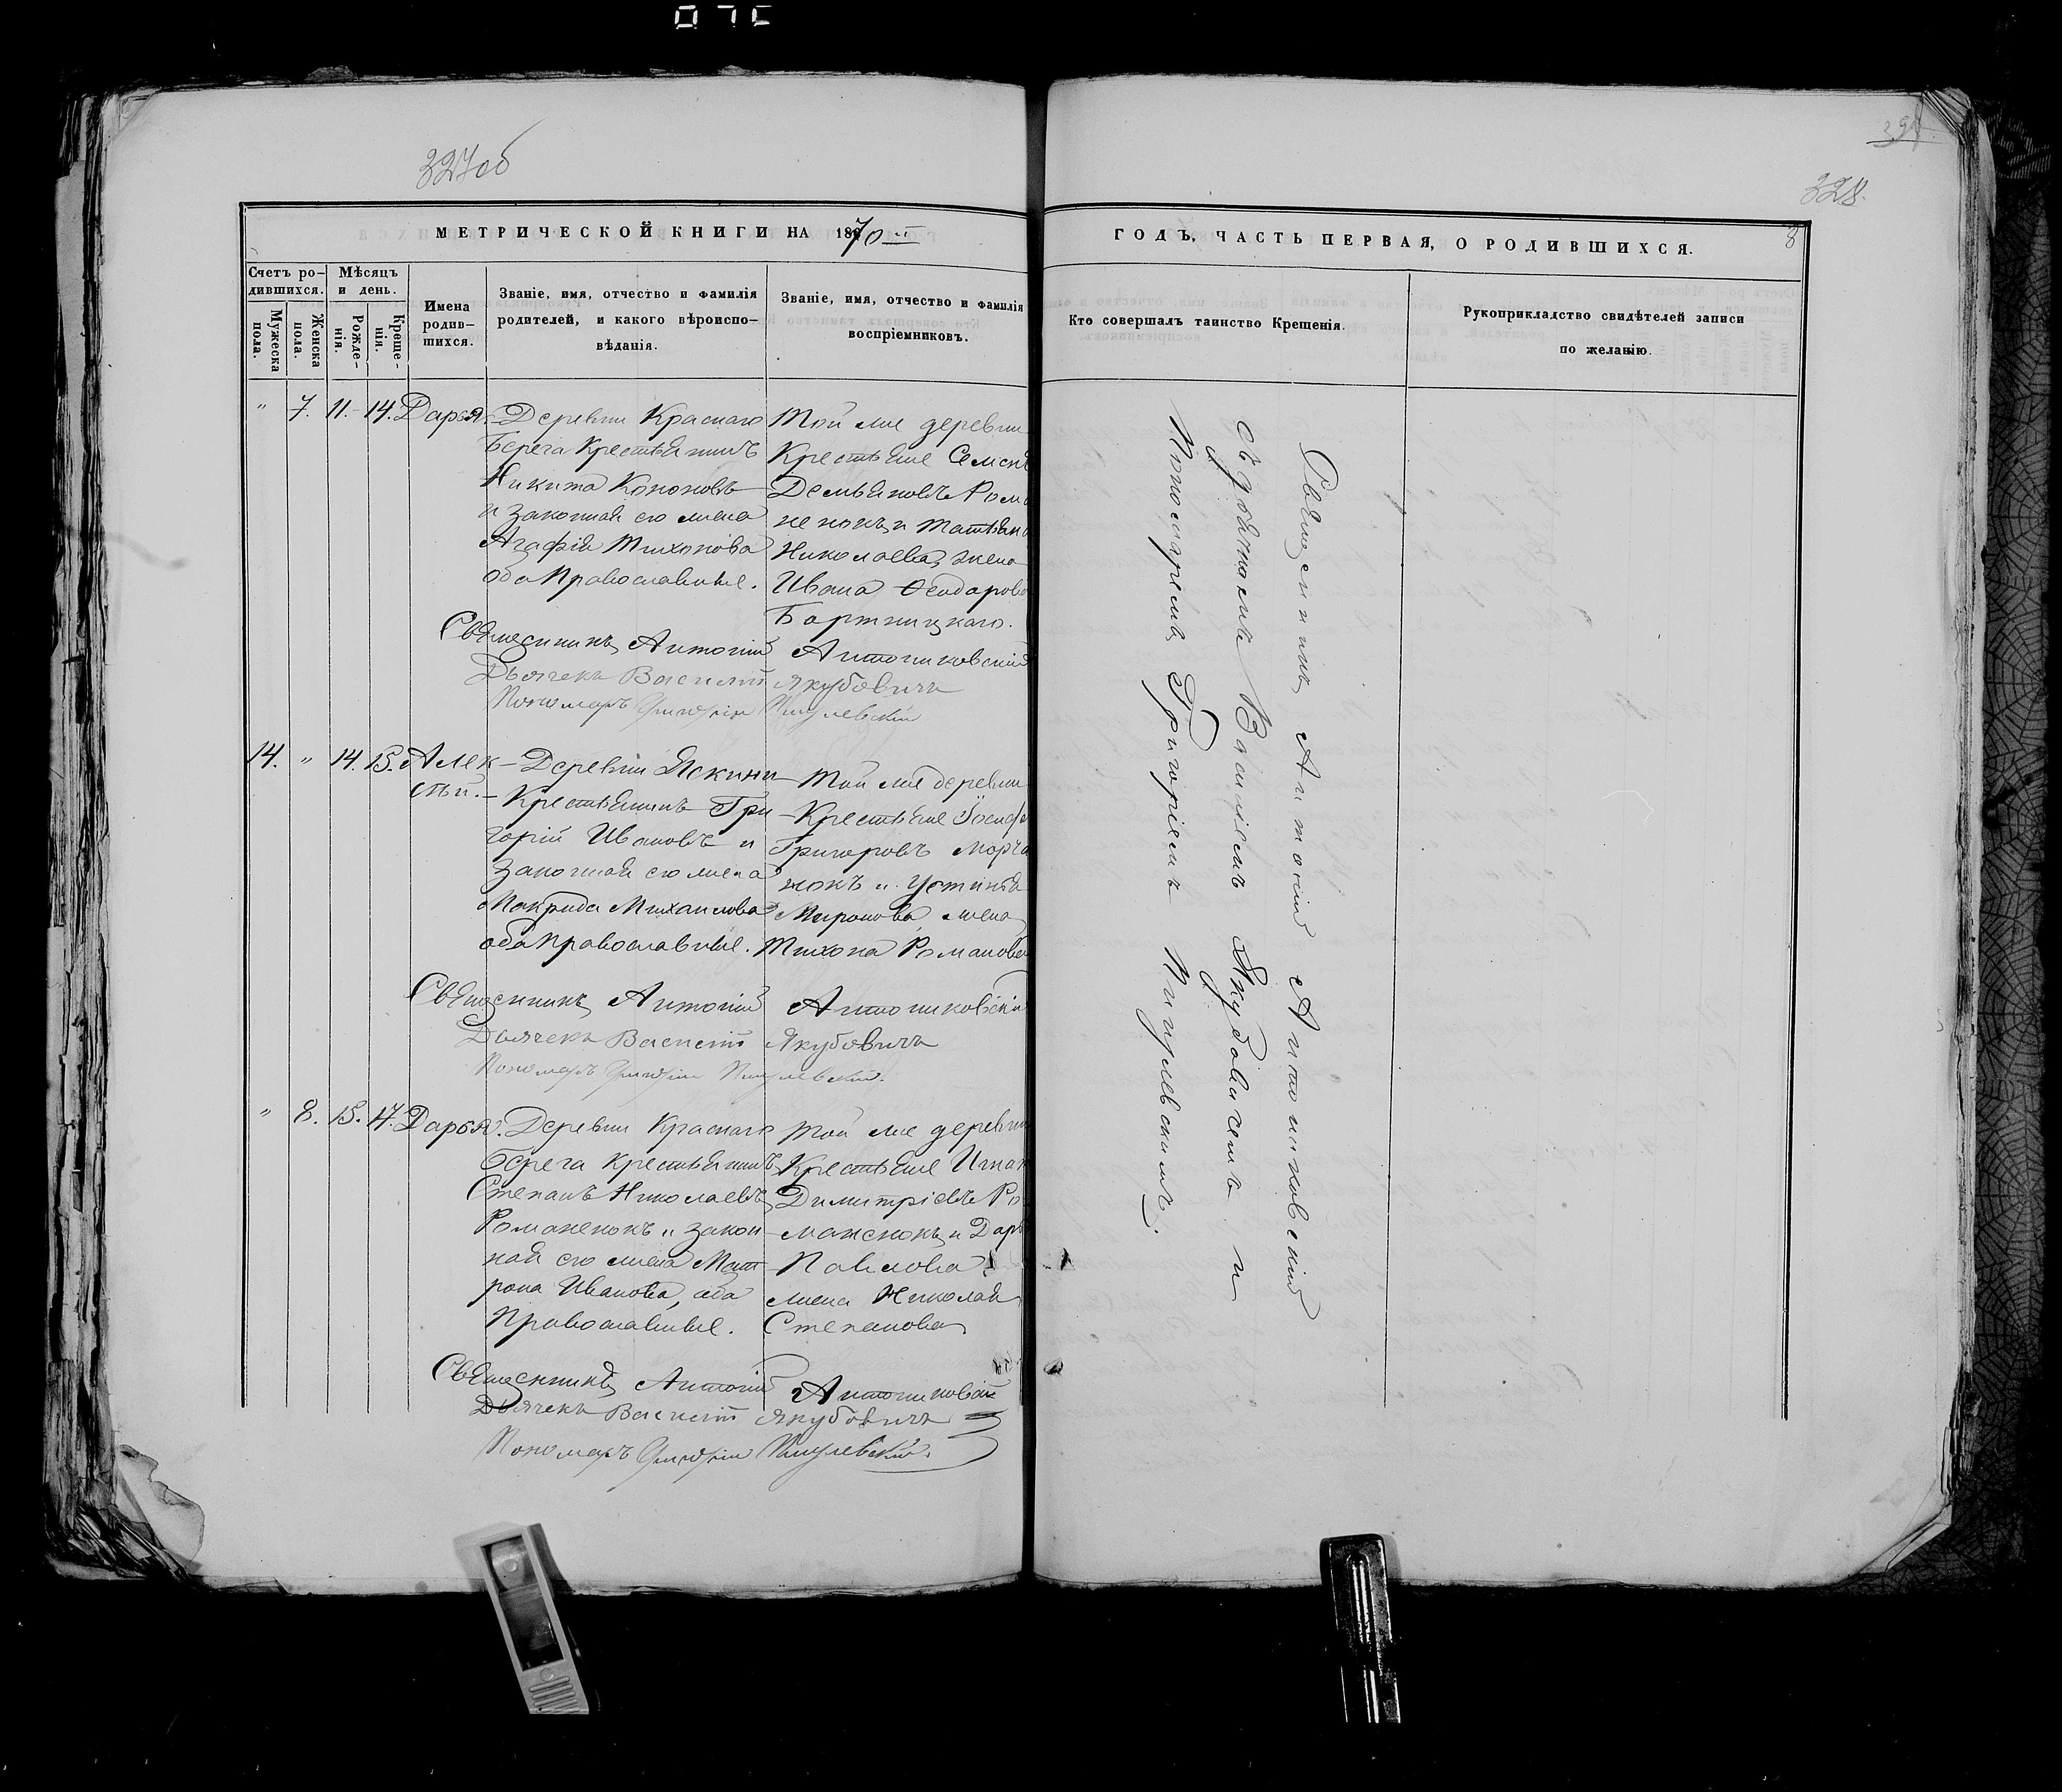 327об
328.
МЕТРИЧЕСКОЙ КНИГИ НА 1870й
ГОДЪ, ЧАСТЬ ПЕРВАЯ, О РОДИВШИХСЯ.
8
Счетъ ро-
дившихся.
Мужеска
пола.
Женска
пола.
Мѣсяцъ
и день.
Рожде-
нія.
Креще-
нія.
Имена
родив-
шихся.
Званіе, имя, отчество и фамилія
родителей, и какого вѣроиспо-
вѣданія.
Званіе, имя, отчество и фамилія
воспріемниковъ.
Кто совершалъ таинство Крещенія.
Рукоприкладство свидѣтелей записи
по желанію.
" 7. 11. 14. Дарья.
Деревни Краснаго
Берега Крестьянинъ
Никита Кононовъ
и законная его жена
Агафія Тихонова
оба Православные.
Той же деревни
Крестьяне Семенъ
Демьяновъ Рома
ненокъ и Татьяна
Николаева, жена
Ивана Ѳеодорова
Бортницкаго.
Священникъ Антоній Антониковскій
Дьячекъ Василій Якубовичъ
Пономарь Григорій Пигулевскій
14. " 14. 15. Алек
сѣй.
Деревни Яскини
Крестьянинъ Гри
горій Ивановъ и
законная его жена
Макрида Михаилова
оба Православные.
Той же деревни
Крестьяне Іосифъ
Григоровъ Морча
нокъ и Устинья
Миронова, жена
Тихона Романова
Священникъ Антоній Антониковскій
Дьячекъ Василій Якубовичъ
Пономарь Григорій Пигулевскій.
" 8. 15. 17. Дарья.
Деревни Краснаго
Берега крестьянинъ
Степанъ Николаевъ
Романенокъ и закон
ная его жена Мат
рона Иванова, оба
Православные.
Той же деревни
Крестьяне Игнат
Димитріевъ Ро
маненокъ и Дарья
Павлова
жена Николая
Степанова
Священникъ Антоній Антониковскій
Дьячекъ Василій Якубовичъ
Пономарь Григорій Пигулевскій.
Священникъ Антоній Антониковскій
съ дьячкомъ Василіемъ Якубовичемъ и
Пономаремъ Григоріемъ Пигулевскимъ.